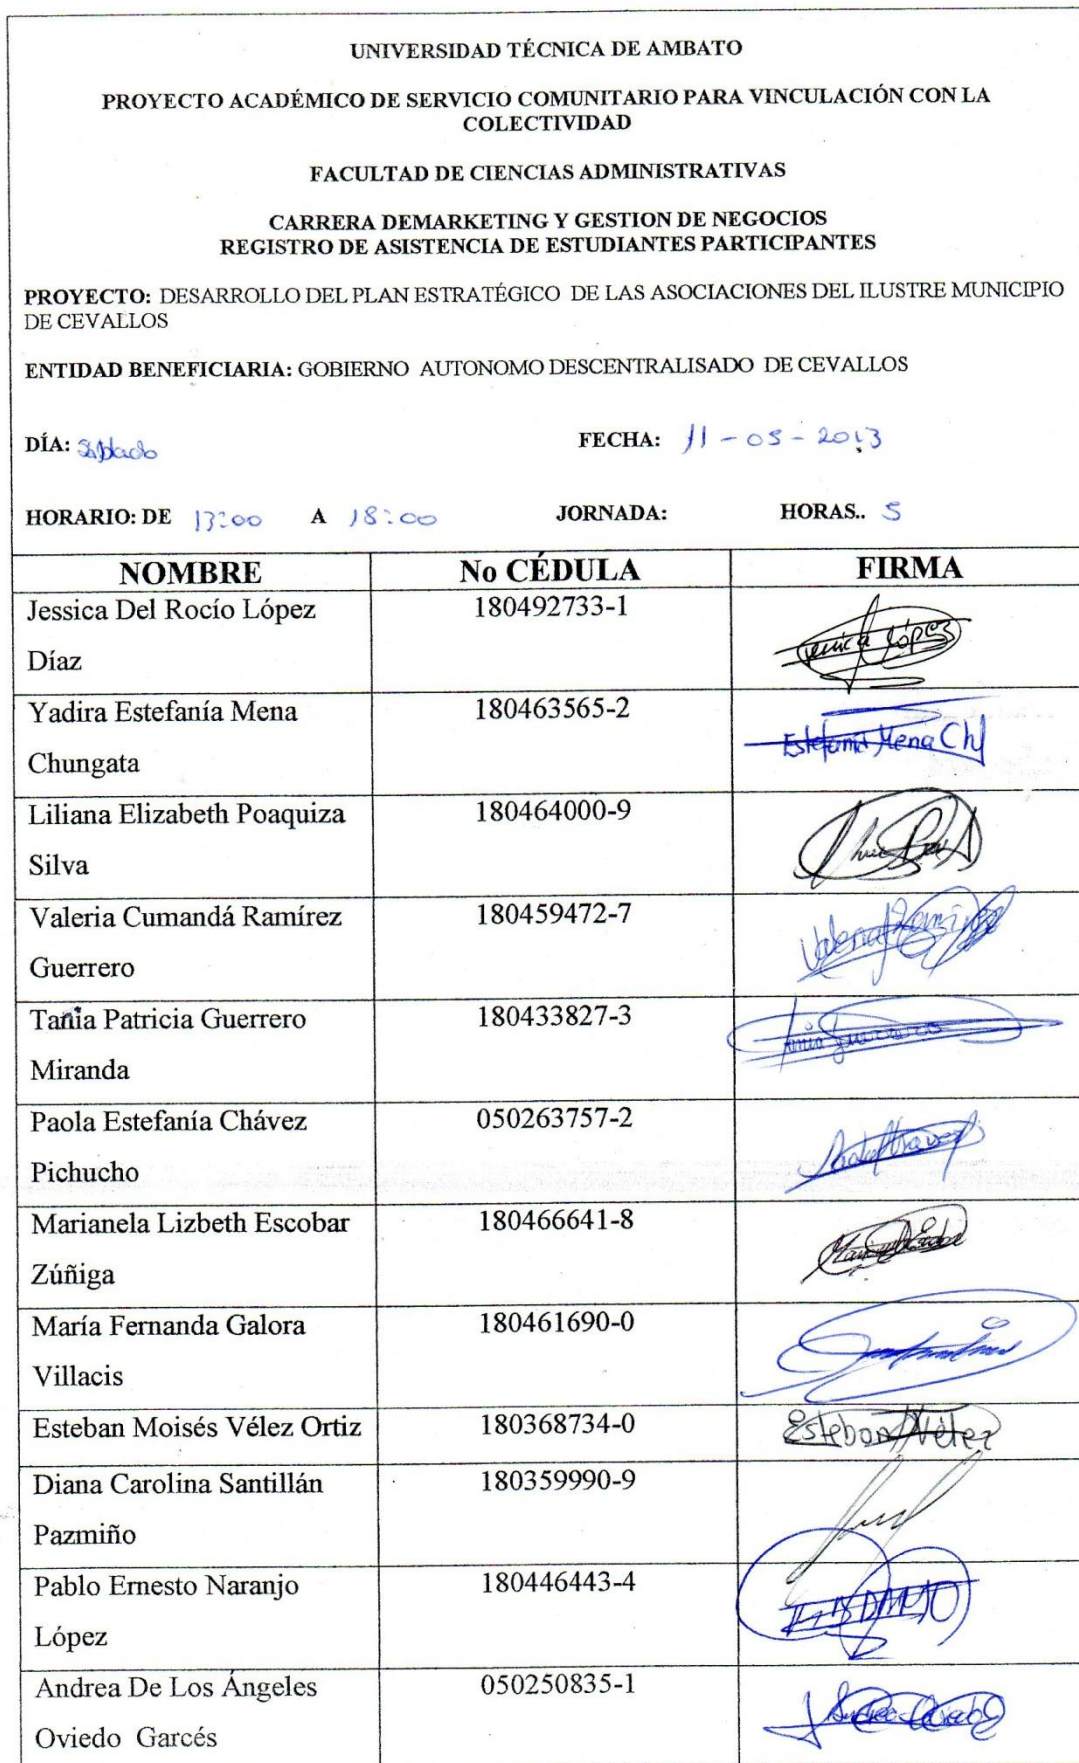 UNIVERSIDAD TÉCNICA DE AMBATO
PROYECTO ACADÉMICO DE SERVICIO COMUNITARIO PARA VINCULACIÓN CON LA
COLECTIVIDAD
FACULTAD DE CIENCIAS ADMINISTRATIVAS
CARRERA DEMARKETING Y GESTION DE NEGOCIOS
REGISTRO DE ASISTENCIA DE ESTUDIANTES PARTICIPANTES
PROYECTO: DESARROLLO DEL PLAN ESTRATÉGICO DE LAS ASOCIACIONES DEL ILUSTRE MUNICIPIO
DE CEVALLOS
ENTIDAD BENEFICIARIA: GOBIERNO AUTONOMO DESCENTRALISADO DE CEVALLOS
DÍA: Sábado FECHA: 11-05-2013
HORARIO: DE 13:00 A 18:00 JORNADA: HORAS.. 5
NOMBRE No CÉDULA FIRMA
Jessica Del Rocío López 180492733-1
Díaz
Yadira Estefanía Mena 180463565-2 Estefanía Mena Ch
Chungata
Liliana Elizabeth Poaquiza 180464000-9
Silva
Valeria Cumandá Ramírez 180459472-7 Valeria Ramírez
Guerrero
Tania Patricia Guerrero 180433827-3 Tania Guerrero
Miranda
Paola Estefanía Chávez 050263757-2
Pichucho
Marianela Lizbeth Escobar 180466641-8
Zúñiga
María Fernanda Galora 180461690-0
Villacis
Esteban Moisés Vélez Ortiz 180368734-0 Esteban Vélez
Diana Carolina Santillán 180359990-9
Pazmiño
Pablo Ernesto Naranjo 180446443-4
López
Andrea De Los Ángeles 050250835-1
Oviedo Garcés